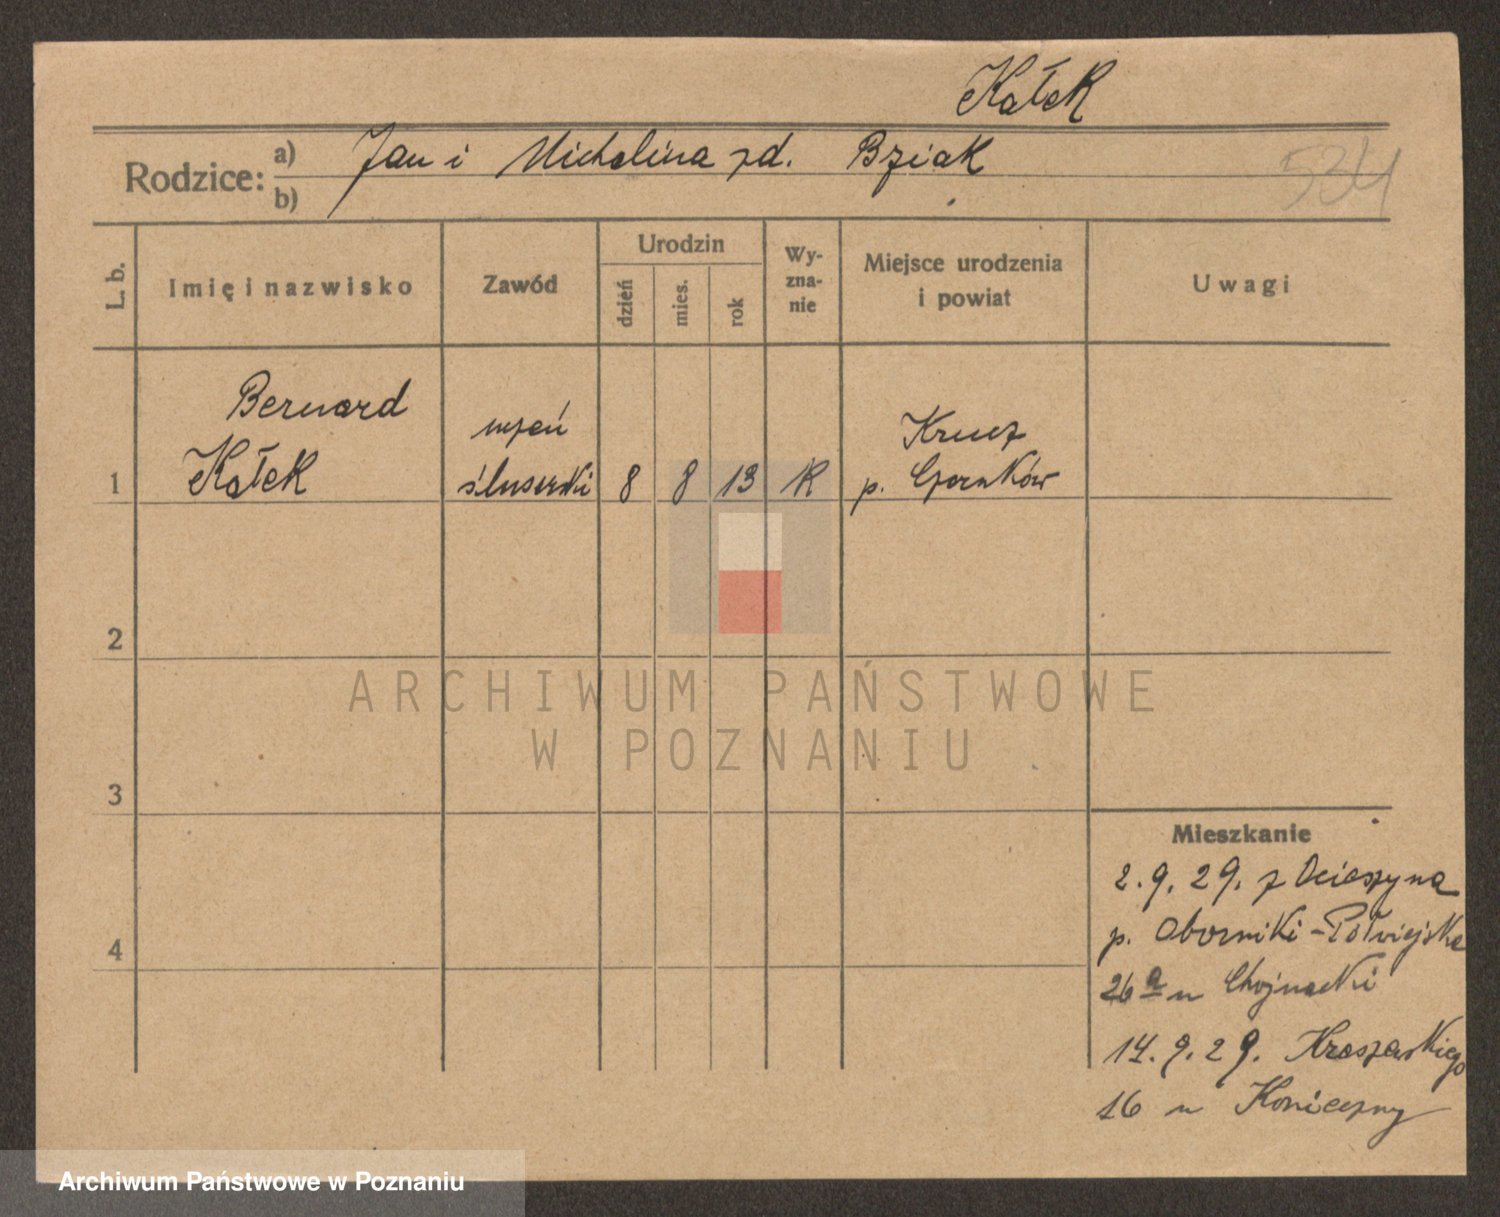 Kałek
Rodzice: a) Jan i Michalina zd. Bziak
b)
534
L. b.
Imię i nazwisko
Zawód
Urodzin
dzień
mies.
rok
Wy-
zna-
nie
Miejsce urodzenia
i powiat
Uwagi
Bernard
Kałek
uczeń
ślusarski
8
8
13
K
Krucz
p. Czarnków
1
2
3
4
Mieszkanie
2. 9. 29. z Ocieszyna
p. Oborniki - Półwiejska
26a u Chojnacki
14. 9. 29. Kraszewskiego
16 u Konieczny
ARCHIWUM PAŃSTWOWE
W POZNANIU
Archiwum Państwowe w Poznaniu